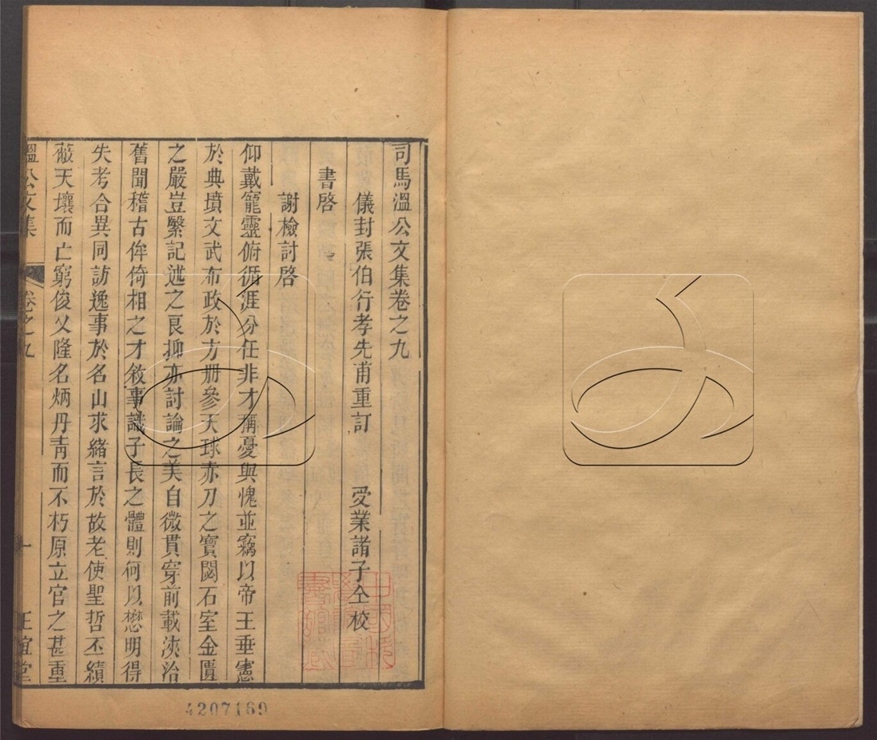 司馬溫公文集卷之九
儀封張伯行孝先甫重訂 受業諸子仝校
書啓
謝檢討啓
仰戴寵靈俯循涯分任非才稱憂與愧並竊以帝王垂憲
於典墳文武布政於方冊參天球赤刀之寶閟石室金匱
之嚴豈繄記述之良抑亦討論之美自微貫穿前載浹洽
舊聞稽古侔倚相之才敘事識子長之體則何以懋明得
失考合異同訪逸事於名山求緒言於故老使聖哲丕績
蔽天壤而亡窮俊乂隆名炳丹青而不朽原立官之甚重
溫公文集 卷之九 一 正誼堂
4207169